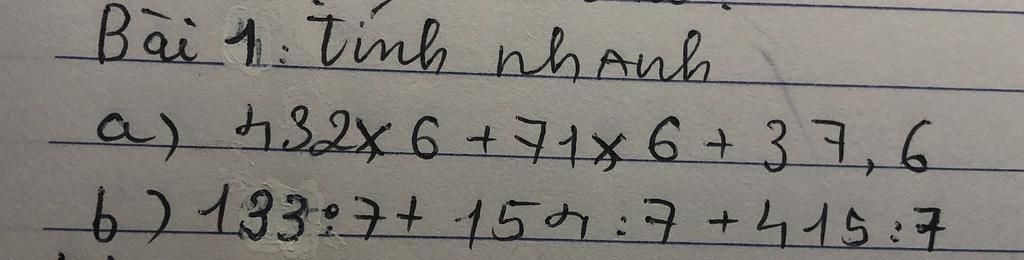 Bài 1: Tính nhanh
a) 432 x 6 + 71 x 6 + 37,6
b) 133 : 7 + 154 : 7 + 415 : 7